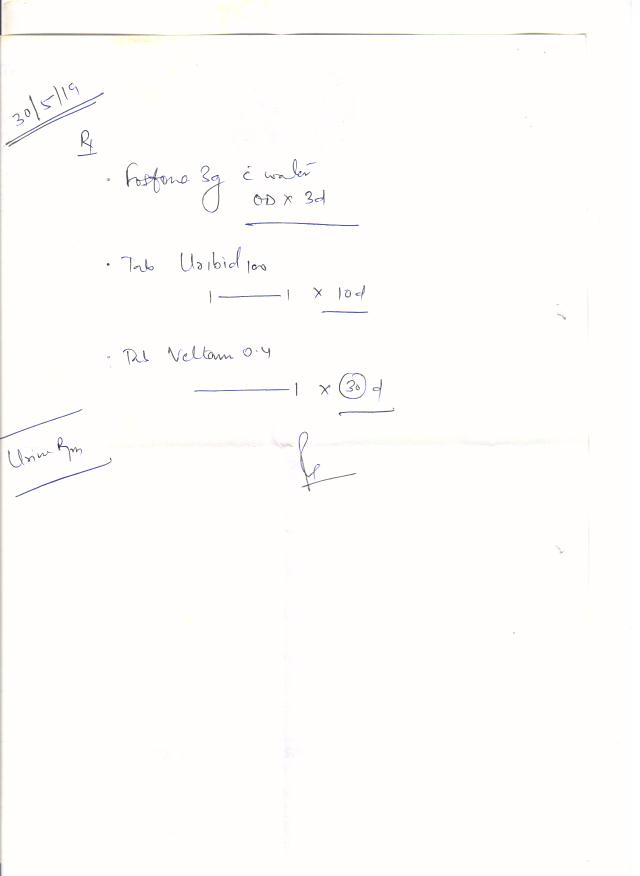 30/5/19
Rx
· Fosfone 3g c̄ water
OD x 3d
· Tab Uribid 100
1 ——— 1 x 10d
· Tab Veltam 0.4
——— 1 x 30 d
Urine R/m